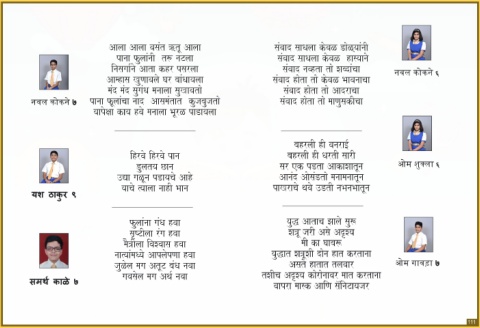 आला आला वसंत ऋतू आला
पाना फुलांनी तरू नटला
निसर्गाने आता कहर पसरला
आम्हास खुणावले घर बांधायला
मंद मंद सुगंध मनाला सुखावतो
पाना फुलांचा नाद आसमंतात कुजबुजतो
यापेक्षा काय हवे मनाला भूरळ पाडायला
नवल कोकने ७
हिरवे हिरवे पान
डुलतय छान
उद्या गळून पडायचे आहे
याचे त्याला नाही भान
यश ठाकुर ९
फुलांना गंध हवा
सृष्टीला रंग हवा
मैत्रीला विश्वास हवा
नात्यांमध्ये आपलेपणा हवा
जुळेल मग अतूट बंध नवा
गवसेल मग अर्थ नवा
समर्थ काळे ७
संवाद साधला केवळ डोळ्यांनी
संवाद साधला केवळ हास्याने
संवाद नव्हता तो शब्दांचा
संवाद होता तो केवळ भावनांचा
संवाद होता तो आदराचा
संवाद होता तो माणुसकीचा
नवल कोकने ६
बहरली ही वनराई
बहरली ही धरती सारी
सर एक पडता आकाशातून
आनंद ओसंडतो मनामनातून
पाखरांचे थवे उडती नभनभातून
ओम शुक्ला ६
युद्ध आताच झाले सुरू
शत्रू जरी असे अदृश्य
मी का घाबरू
युद्धात शत्रूशी दोन हात करताना
असते हातात तलवार
तशीच अदृश्य कोरोनावर मात करताना
वापरा मास्क आणि सॅनिटायजर
ओम गावडा ७